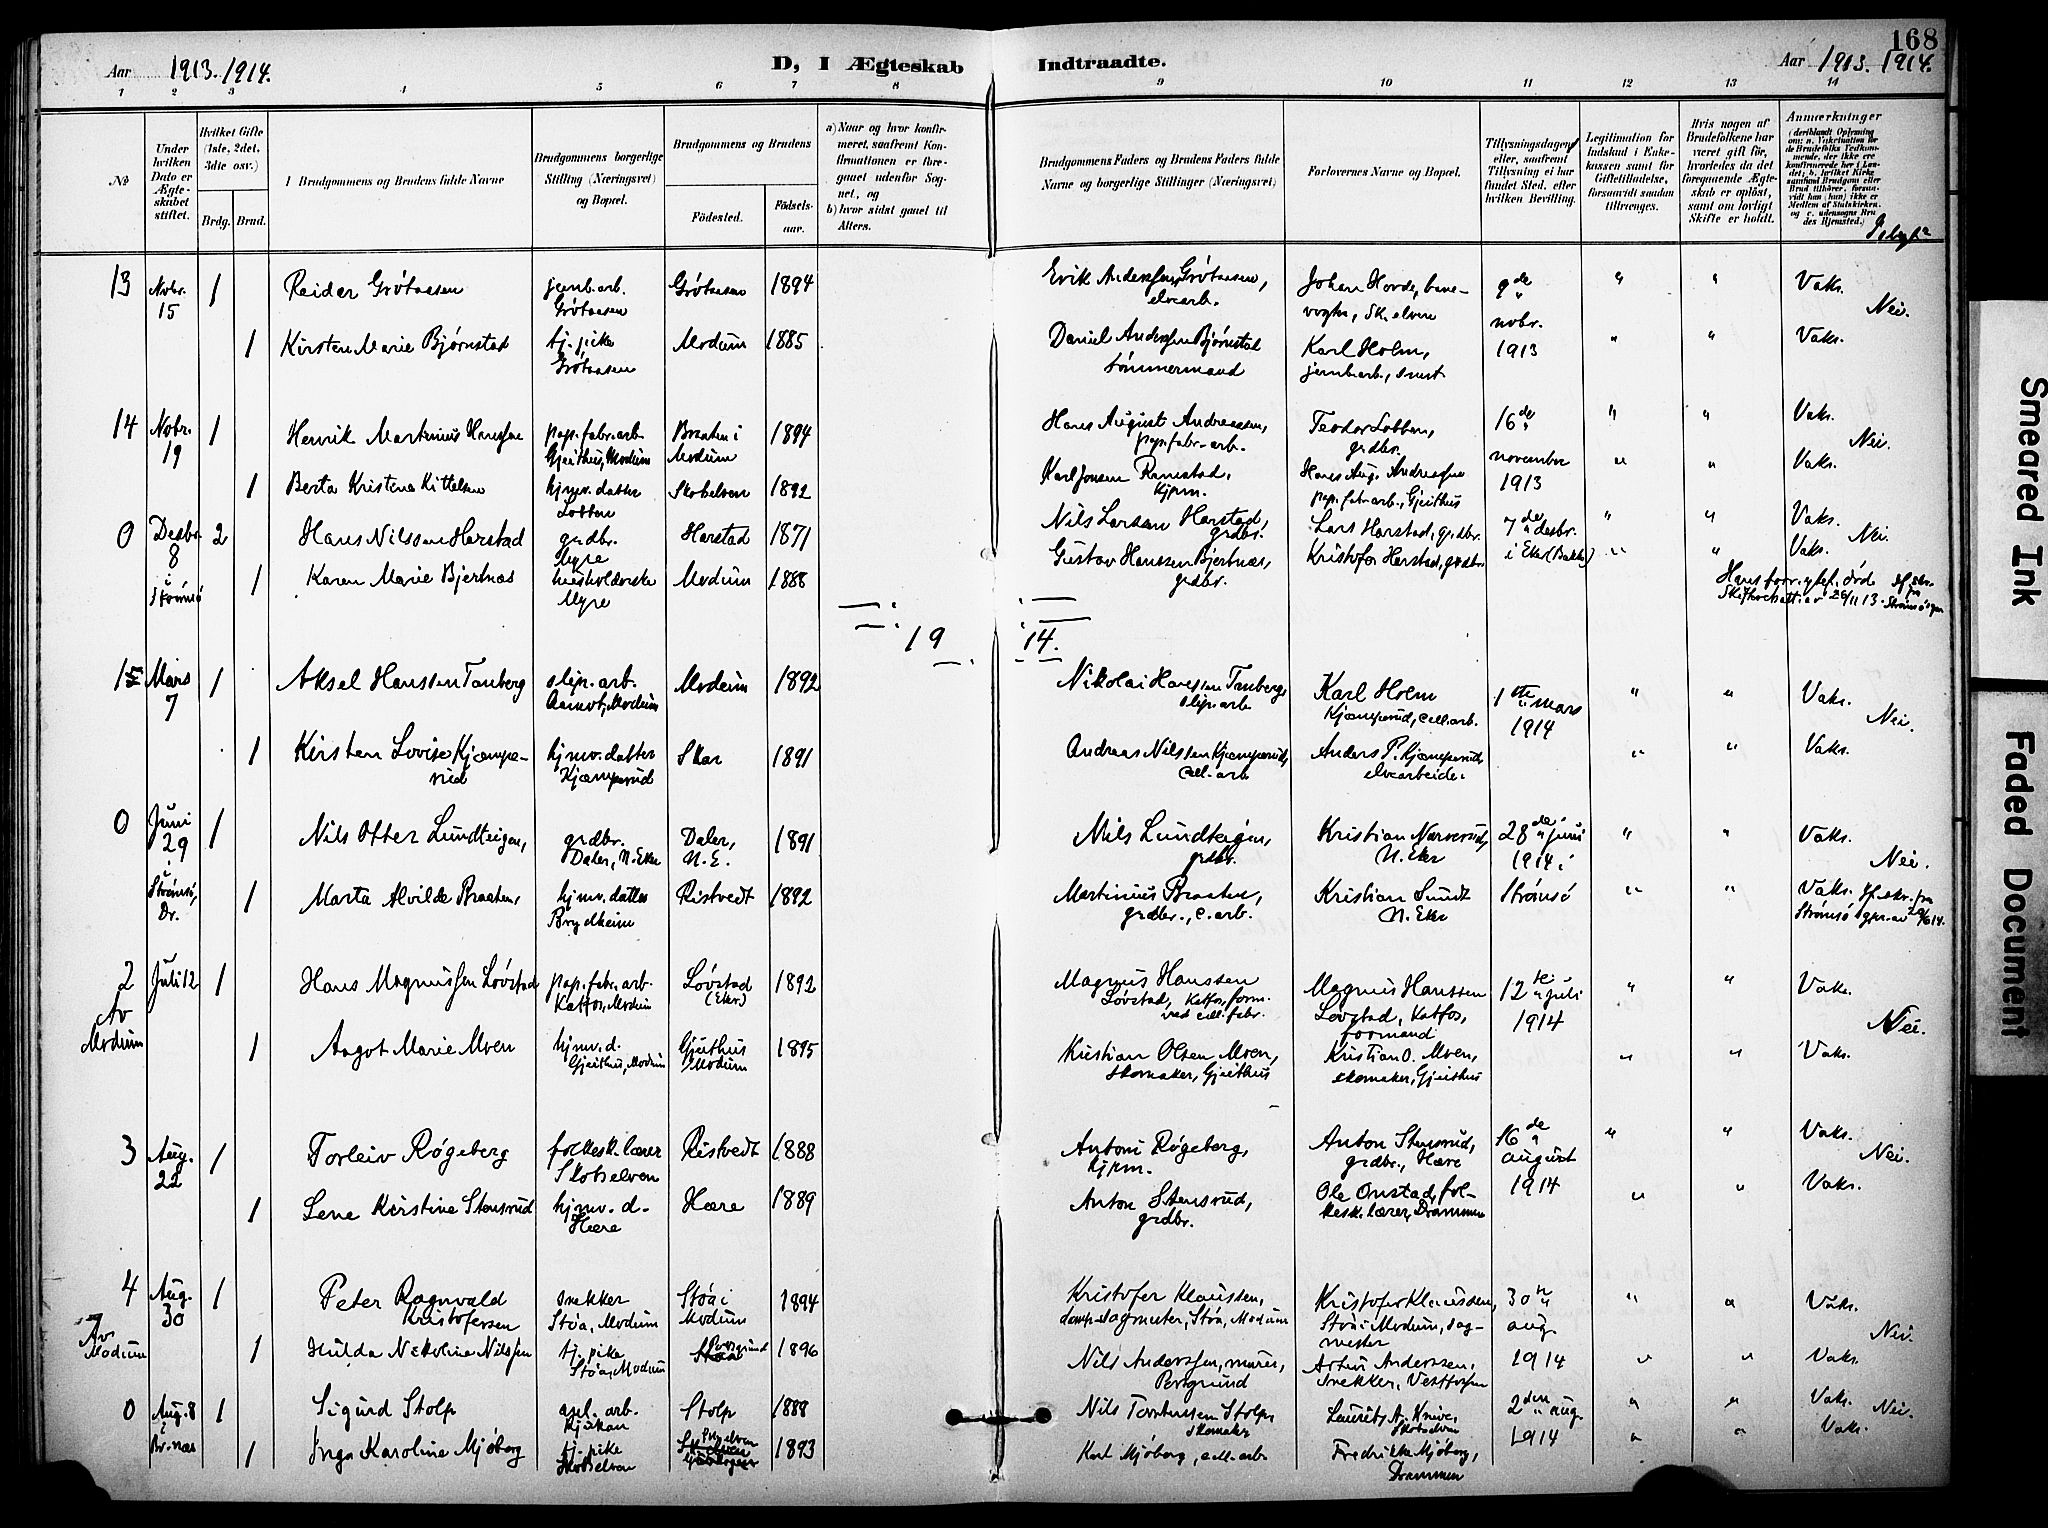 168
Aar 1913. 1914. D, I Ægteskab Indtraadte. Aar 1913. 1914.
1 2 3 4 5 6 7 8 9 10 11 12 13 14
No
Under hvilken Dato er Ægteskabet stiftet.
Hvilket Gifte (1ste, 2det, 3die osv.)
Brdg. Brud.
Brudgommens og Brudens fulde Navne
Brudgommens borgerlige Stilling (Næringsvei) og Bopæl.
Brudgommens og Brudens
Födested.
Födselsaar.
a) Naar og hvor konfirmeret, saafremt Konfirmationen er foregaaet udenfor Sognet, og
b) hvor sidst gaaet til Alters.
Brudgommens Faders og Brudens Faders fulde Navne og borgerlige Stillinger (Næringsvei)
Forlovernes Navne og Bopæl.
Tillysningsdagen eller, saafremt Tillysning ei har fundet Sted, efter hvilken Bevilling.
Legitimation for Indskud i Enkekassen samt for Giftetilladelse, forsaavidt saadan tiltrænges.
Hvis nogen af Brudefolkene har været gift för, hvorledes da det foregaaende Ægteskab er oplöst, samt om lovligt Skifte er holdt.
Anmærkninger
13 Nobr. 15 1 Reidar Grøtaasen jernb.arb. Grøtaasen Grøtaasen 1894 Erik Anderssen Grøtaasen, elvearb. Johan Horde, banevogter, Sk.elven 9de nobr. 1913 " " Vaks. Nei.
1 Kirsten Marie Bjørnstad tj. pike Grøtaasen Modum 1885 Daniel Anderssen Bjørnstad tømmermand Karl Holm, jernb.arb., " " Vaks.
14 Nobr. 19 1 Henrik Martinius Hanssen pap.fabr.arb. Gjeithus, Modum Braaten i Modum 1894 Hans August Andreassen, pap.fabr.arb. Teodor Lobben, grdbr. 16de november 1913 " " Vaks. Nei.
1 Berta Kristine Kittelsen hjmv. datter Lobben Skotselven 1892 Karl Jonsen Ramstad, kjpm. Hans Aug. Andreassen pap.fabr.arb., Gjeithus " " Vaks.
0 Desbr. 8 i Strømsø 2 Hans Nilssen Harstad grdbr. Myre Harstad 1871 Nils Larsen Harstad, grdbr. Lars Harstad, grdbr. 7de desbr. i Eker (Bakke) " " Vaks. Nei.
1 Karen Marie Bjertnæs husholderske Myre Modum 1888 Gustav Hanssen Bjertnæs, grdbr. Kristofer Harstad, grdbr. " " Vaks.
Hans forr. egtef. død Skifteattest av 26/11 13.
19 14.
1 Mars 7 1 Aksel Hanssen Tanberg slip.arb. Aamot, Modum Modum 1892 Nikolai Hanssen Tanberg, slip.arb. Karl Holm Kjæmperud, cell.arb. 1ste mars 1914 " " Vaks. Nei.
1 Kirsten Lovise Kjæmperud hjmv. datter Kjæmperud Skar 1891 Andreas Nilssen Kjæmperud, cell.arb. Anders P. Kjæmperud, elvearbeider " " Vaks.
0 Juni 29 i Strømsø, Dr. 1 Nils Otter Lundteigen, grdbr. Daler, N. Eker Daler, N. E. 1891 Nils Lundteigen, grdbr. Kristian Narverud, N. Eker 28de juni 1914 i Strømsø " " Vaks. Nei.
1 Marta Alvilde Braaten, hjmv. datter Brydheim Ristvedt 1892 Martinius Braaten, grdbr., c. arb. Kristian Sundt N. Eker " " Vaks.
2 Av Modum Juli 12 1 Hans Magnussen Løvstad pap.fabr.arb. Katfos, Modum Løvstad (Eker) 1892 Magnus Hanssen Løvstad, Katfos, form. ved cell.fabr. Magnus Hanssen Løvstad, Katfos, formand 12te juli 1914 " " Vaks. Nei.
1 Aagot Marie Moen hjmv. d. Gjeithus, Modum Gjeithus Modum 1895 Kristian Olsen Moen, skomaker, Gjeithus Kristian O. Moen, skomaker, Gjeithus " " Vaks.
3 Aug. 22 1 Torleiv Røgeberg folkesk.lærer Skotselven Ristvedt 1888 Antoni Røgeberg, kjpm. Anton Stensrud, grdbr., Hære 16de august 1914 " " Vaks. Nei.
1 Lene Kirstine Stensrud hjmv. d. Hære Hære 1889 Anton Stensrud, grdbr. Ole Onstad, folkesk.lærer, Drammen " " Vaks.
4 Av Modum Aug. 30 1 Peter Ragnvald Kristofersen snekker Støa, Modum Støa i Modum 1894 Kristofer Klaussen, dampsagmester, Støa, Modum Kristofer Klaussen, Støa i Modum, sagmester 30te aug. 1914 " " Vaks. Nei.
1 Hulda Nikoline Nilssen tj. pike Støa, Modum Porsgrund 1896 Nils Anderssen, murer, Porsgrund Artur Anderssen, snekker, Vestfossen " " Vaks.
0 Aug. 8 i Br.næs 1 Sigurd Stolp arb. Rjukan Stolp 1888 Nils Torstenssen Stolp, Skomaker Laurits A. Knive, Skotselven 2den aug. 1914 " " Vaks. Nei.
1 Inga Karoline Mjøberg tj. pike Skotselven 1893 Karl Mjøberg, cell.arb. Fredrikke Mjøberg, Drammen " " Vaks.
Smeared Ink
Faded Document